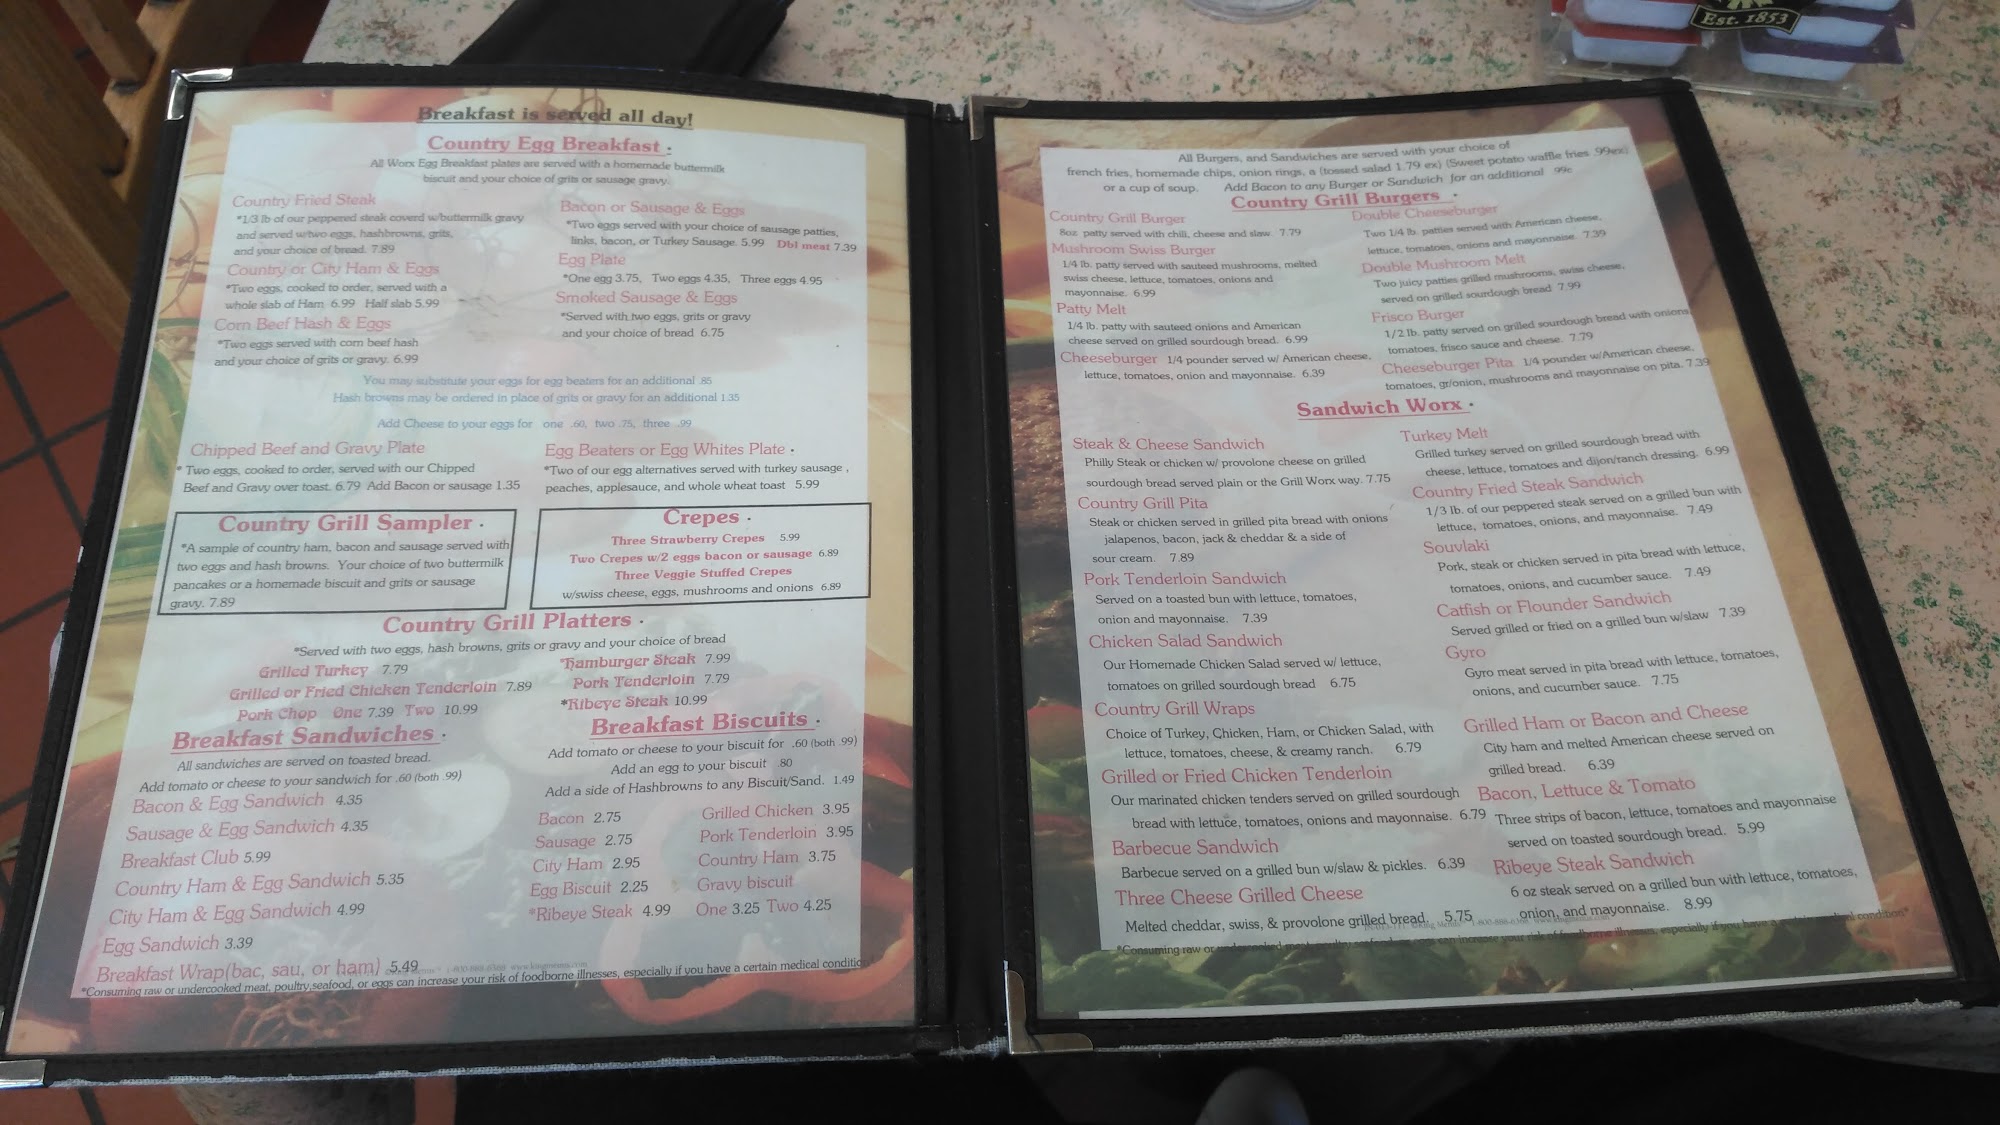 Est. 1853
Breakfast is served all day!
Country Egg Breakfast •
All Worx Egg Breakfast plates are served with a homemade buttermilk
biscuit and your choice of grits or sausage gravy.
Country Fried Steak
*1/3 lb of our peppered steak coverd w/buttermilk gravy
and served w/two eggs, hashbrowns, grits,
and your choice of bread. 7.89
Country or City Ham & Eggs
*Two eggs, cooked to order, served with a
whole slab of Ham 6.99 Half slab 5.99
Corn Beef Hash & Eggs
*Two eggs served with corn beef hash
and your choice of grits or gravy. 6.99
Bacon or Sausage & Eggs
*Two eggs served with your choice of sausage patties,
links, bacon, or Turkey Sausage. 5.99 Dbl meat 7.39
Egg Plate
*One egg 3.75, Two eggs 4.35, Three eggs 4.95
Smoked Sausage & Eggs
*Served with two eggs, grits or gravy
and your choice of bread 6.75
You may substitute your eggs for egg beaters for an additional .85
Hash browns may be ordered in place of grits or gravy for an additional 1.35
Add Cheese to your eggs for one .60, two .75, three .99
Chipped Beef and Gravy Plate
* Two eggs, cooked to order, served with our Chipped
Beef and Gravy over toast. 6.79 Add Bacon or sausage 1.35
Egg Beaters or Egg Whites Plate •
*Two of our egg alternatives served with turkey sausage ,
peaches, applesauce, and whole wheat toast 5.99
Country Grill Sampler •
*A sample of country ham, bacon and sausage served with
two eggs and hash browns. Your choice of two buttermilk
pancakes or a homemade biscuit and grits or sausage
gravy. 7.89
Crepes •
Three Strawberry Crepes 5.99
Two Crepes w/2 eggs bacon or sausage 6.89
Three Veggie Stuffed Crepes
w/swiss cheese, eggs, mushrooms and onions 6.89
Country Grill Platters •
*Served with two eggs, hash browns, grits or gravy and your choice of bread
Grilled Turkey 7.79
Grilled or Fried Chicken Tenderloin 7.89
Pork Chop One 7.39 Two 10.99
*Hamburger Steak 7.99
Pork Tenderloin 7.79
*Ribeye Steak 10.99
Breakfast Sandwiches •
All sandwiches are served on toasted bread.
Add tomato or cheese to your sandwich for .60 (both .99)
Bacon & Egg Sandwich 4.35
Sausage & Egg Sandwich 4.35
Breakfast Club 5.99
Country Ham & Egg Sandwich 5.35
City Ham & Egg Sandwich 4.99
Egg Sandwich 3.39
Breakfast Wrap(bac, sau, or ham) 5.49
Breakfast Biscuits •
Add tomato or cheese to your biscuit for .60 (both .99)
Add an egg to your biscuit .80
Add a side of Hashbrowns to any Biscuit/Sand. 1.49
Bacon 2.75
Sausage 2.75
City Ham 2.95
Egg Biscuit 2.25
*Ribeye Steak 4.99
Grilled Chicken 3.95
Pork Tenderloin 3.95
Country Ham 3.75
Gravy biscuit
One 3.25 Two 4.25
*Consuming raw or undercooked meat, poultry,seafood, or eggs can increase your risk of foodborne illnesses, especially if you have a certain medical conditio
All Burgers, and Sandwiches are served with your choice of
french fries, homemade chips, onion rings, a (tossed salad 1.79 ex) (Sweet potato waffle fries .99ex)
or a cup of soup. Add Bacon to any Burger or Sandwich for an additional 99c
Country Grill Burgers •
Country Grill Burger
8oz. patty served with chili, cheese and slaw. 7.79
Mushroom Swiss Burger
1/4 lb. patty served with sauteed mushrooms, melted
swiss cheese, lettuce, tomatoes, onions and
mayonnaise. 6.99
Patty Melt
1/4 lb. patty with sauteed onions and American
cheese served on grilled sourdough bread. 6.99
Cheeseburger 1/4 pounder served w/ American cheese,
lettuce, tomatoes, onion and mayonnaise. 6.39
Double Cheeseburger
Two 1/4 lb. patties served with American cheese,
lettuce, tomatoes, onions and mayonnaise. 7.39
Double Mushroom Melt
Two juicy patties grilled mushrooms, swiss cheese,
served on grilled sourdough bread 7.99
Frisco Burger
1/2 lb. patty served on grilled sourdough bread with onions,
tomatoes, frisco sauce and cheese. 7.79
Cheeseburger Pita 1/4 pounder w/American cheese,
tomatoes, gr/onion, mushrooms and mayonnaise on pita. 7.39
Sandwich Worx •
Steak & Cheese Sandwich
Philly Steak or chicken w/ provolone cheese on grilled
sourdough bread served plain or the Grill Worx way. 7.75
Country Grill Pita
Steak or chicken served in grilled pita bread with onions
jalapenos, bacon, jack & cheddar & a side of
sour cream. 7.89
Pork Tenderloin Sandwich
Served on a toasted bun with lettuce, tomatoes,
onion and mayonnaise. 7.39
Chicken Salad Sandwich
Our Homemade Chicken Salad served w/ lettuce,
tomatoes on grilled sourdough bread 6.75
Country Grill Wraps
Choice of Turkey, Chicken, Ham, or Chicken Salad, with
lettuce, tomatoes, cheese, & creamy ranch. 6.79
Grilled or Fried Chicken Tenderloin
Our marinated chicken tenders served on grilled sourdough
bread with lettuce, tomatoes, onions and mayonnaise. 6.79
Barbecue Sandwich
Barbecue served on a grilled bun w/slaw & pickles. 6.39
Three Cheese Grilled Cheese
Melted cheddar, swiss, & provolone grilled bread. 5.75
Turkey Melt
Grilled turkey served on grilled sourdough bread with
cheese, lettuce, tomatoes and dijon/ranch dressing. 6.99
Country Fried Steak Sandwich
1/3 lb. of our peppered steak served on a grilled bun with
lettuce, tomatoes, onions, and mayonnaise. 7.49
Souvlaki
Pork, steak or chicken served in pita bread with lettuce,
tomatoes, onions, and cucumber sauce. 7.49
Catfish or Flounder Sandwich
Served grilled or fried on a grilled bun w/slaw 7.39
Gyro
Gyro meat served in pita bread with lettuce, tomatoes,
onions, and cucumber sauce. 7.75
Grilled Ham or Bacon and Cheese
City ham and melted American cheese served on
grilled bread. 6.39
Bacon, Lettuce & Tomato
Three strips of bacon, lettuce, tomatoes and mayonnaise
served on toasted sourdough bread. 5.99
Ribeye Steak Sandwich
6 oz steak served on a grilled bun with lettuce, tomatoes,
onion, and mayonnaise. 8.99
*Consuming raw or undercooked can increase your risk of foodborne illnesses, especially if you have a certain medical condition*